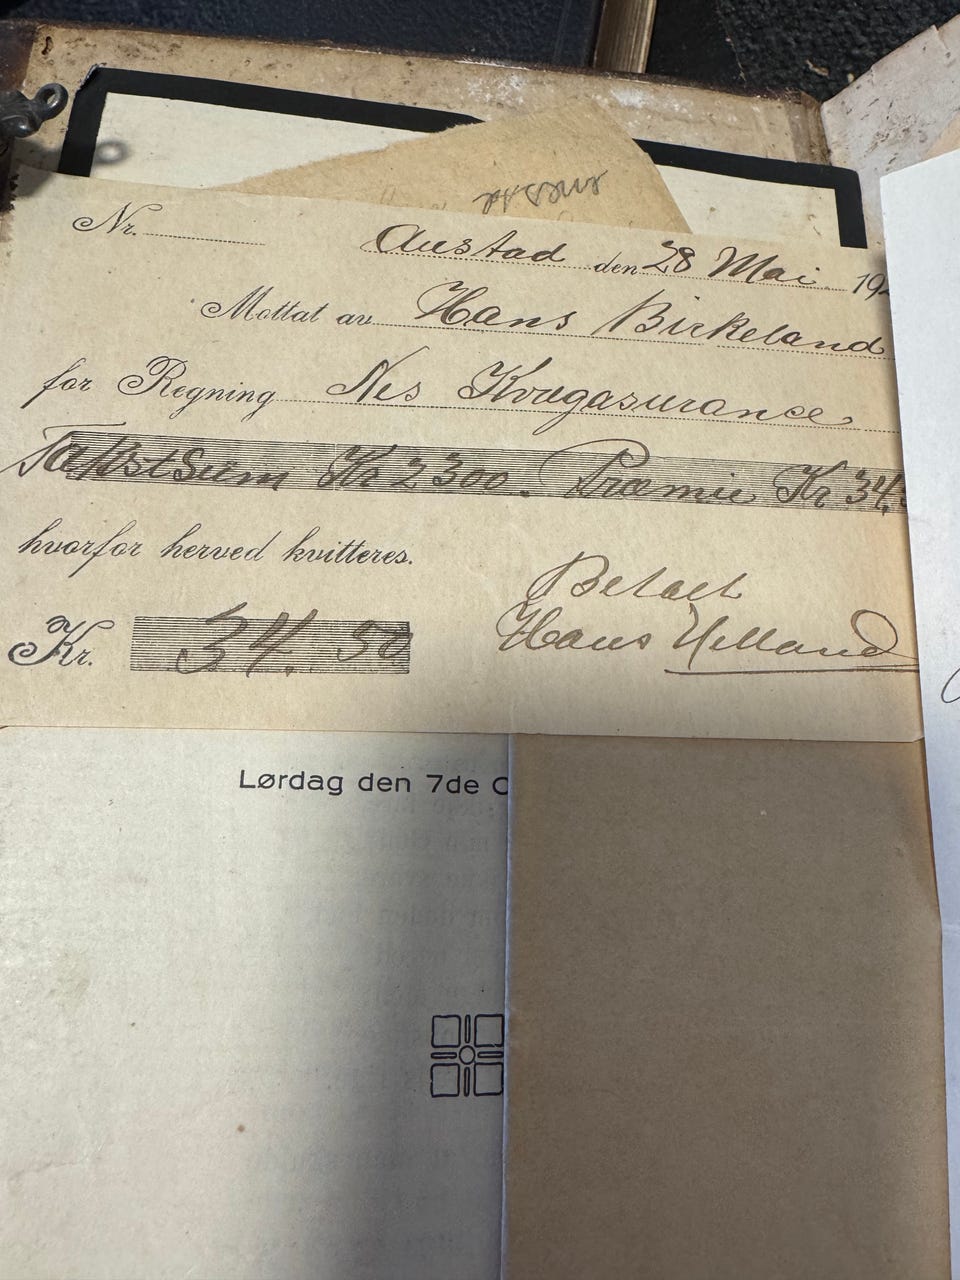 Nr.
Austad den 28 Mai 192
Mottat av Hans Birkeland
for Regning Nes Kvegasurance
TakstSum Kr 2300. Præmie Kr 34.
hvorfor herved kvitteres.
Betalt
Kr. 34.50
Hans
Lørdag den 7de O